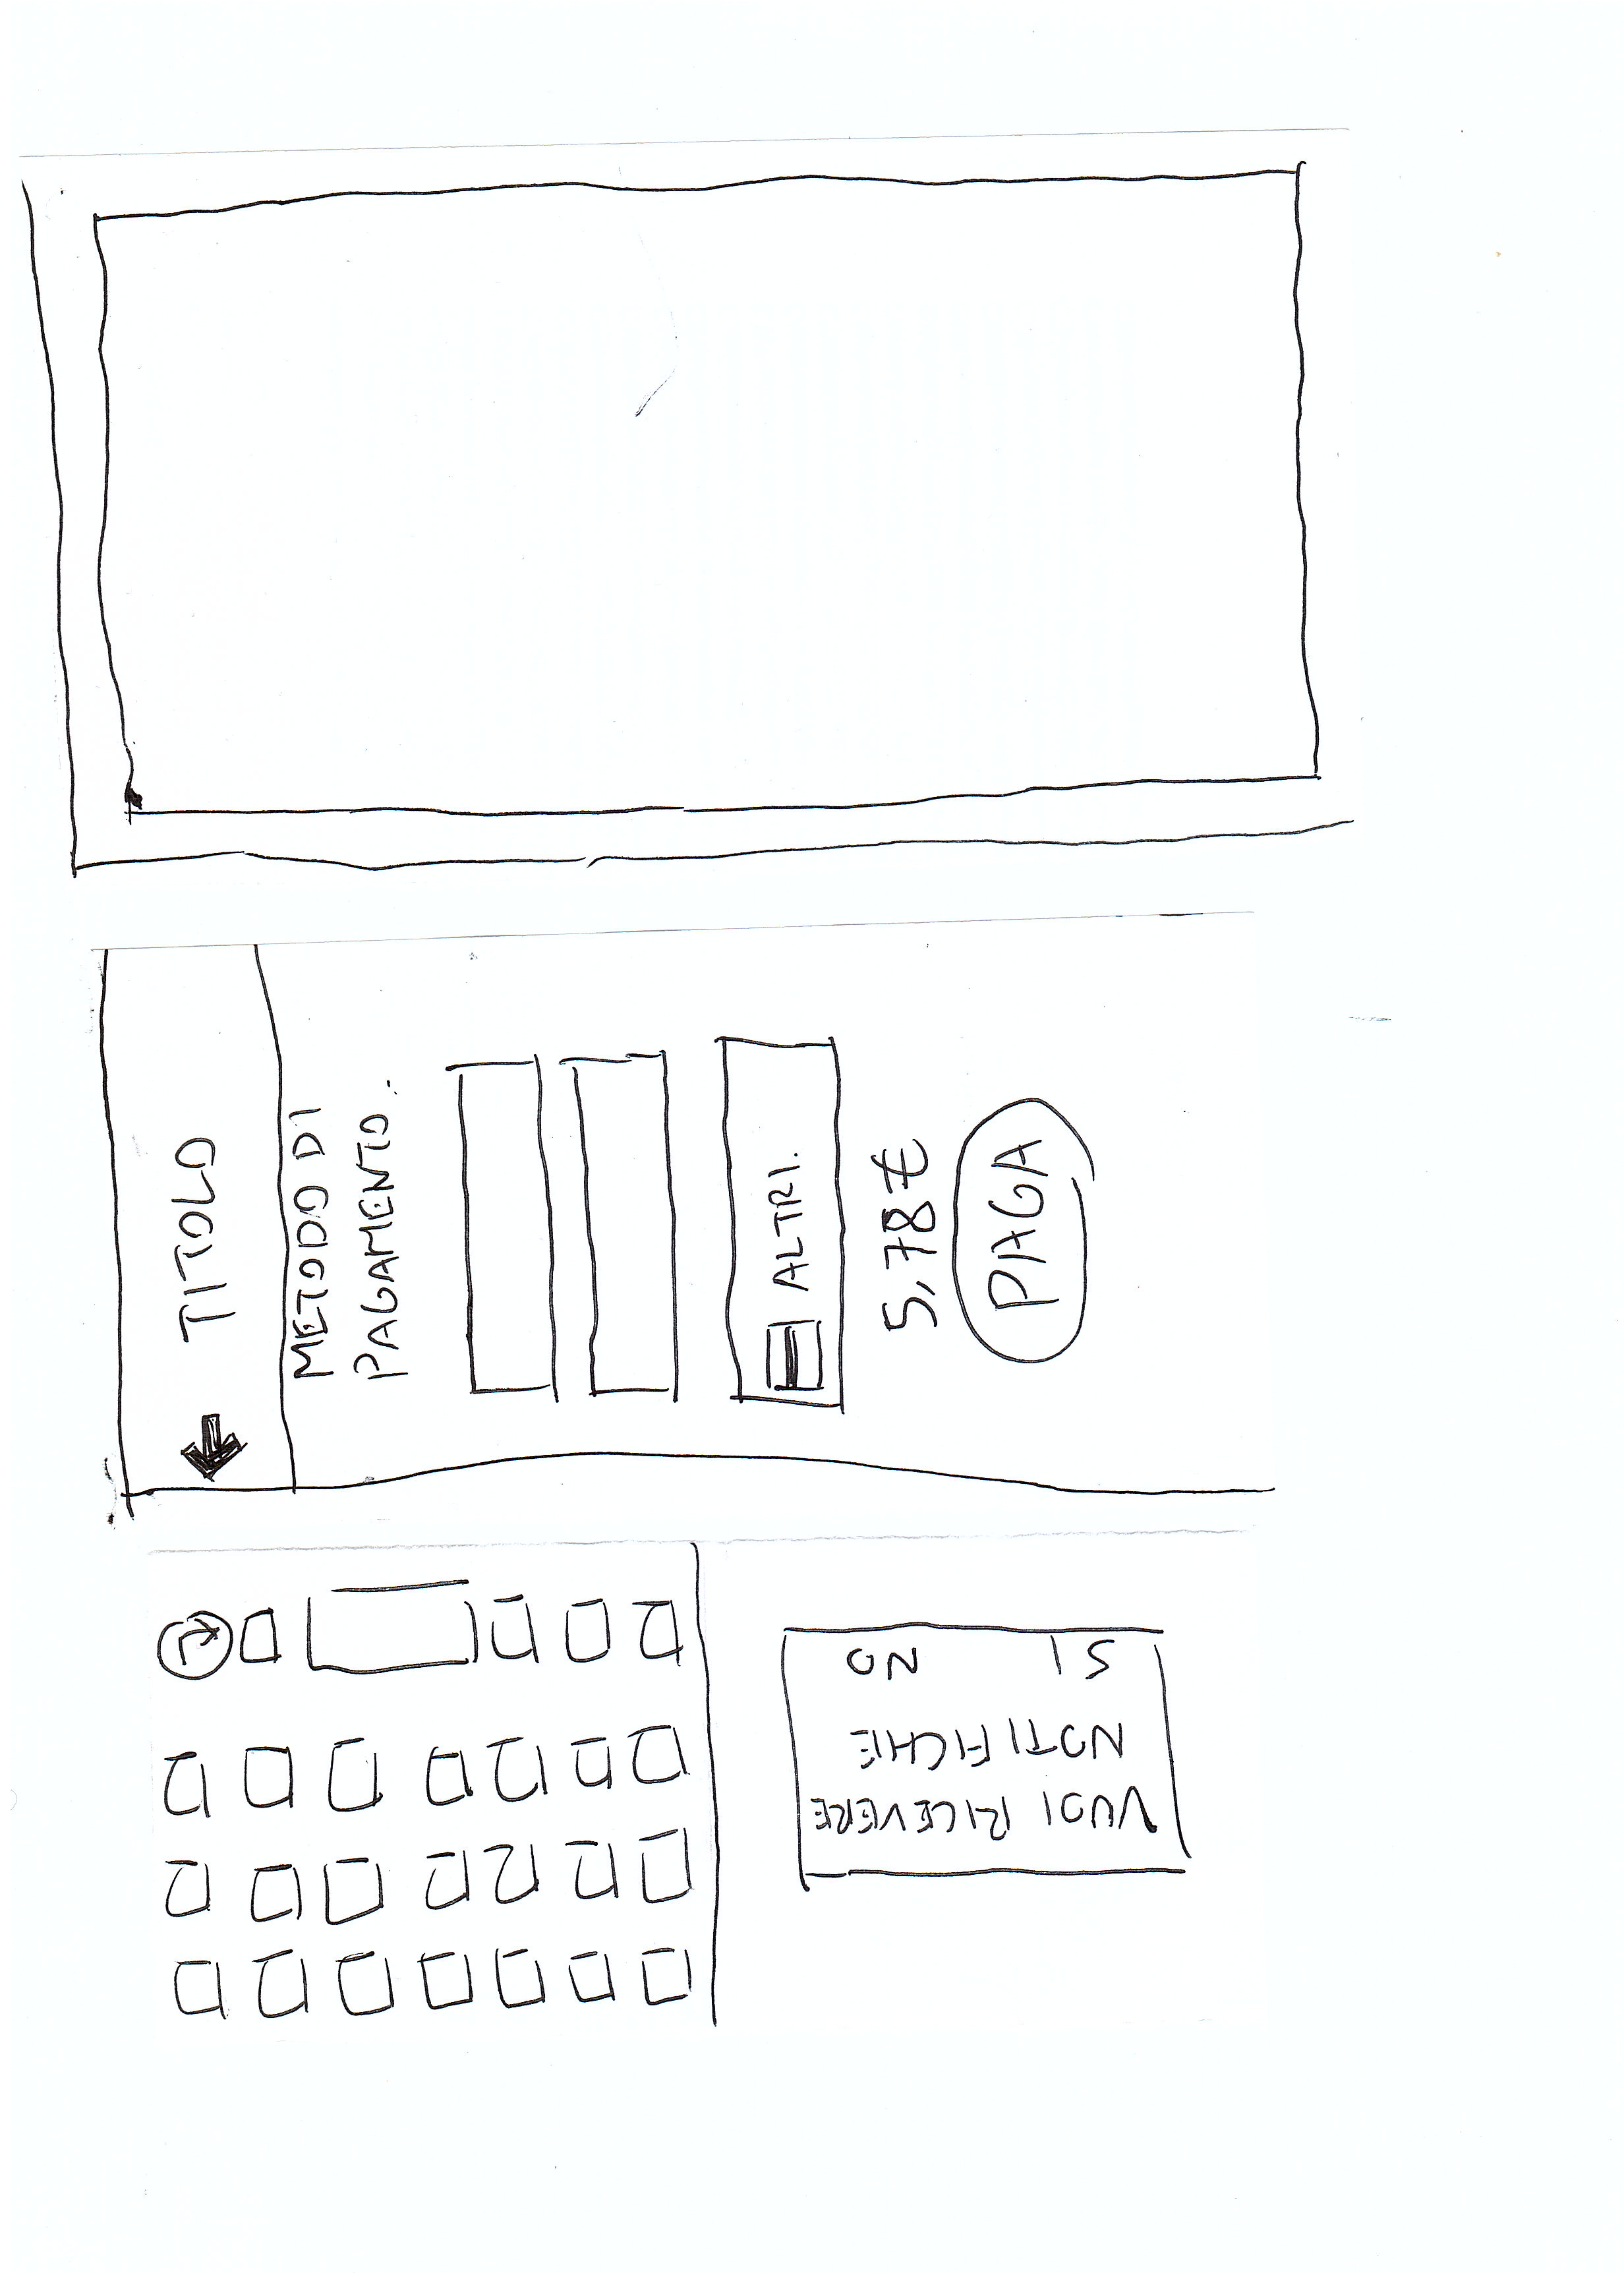 VUOI RICEVERE
NOTIFICHE
SI NO
TITOLO
METODO DI
PAGAMENTO.
ALTRI.
5,78 €
PAGA